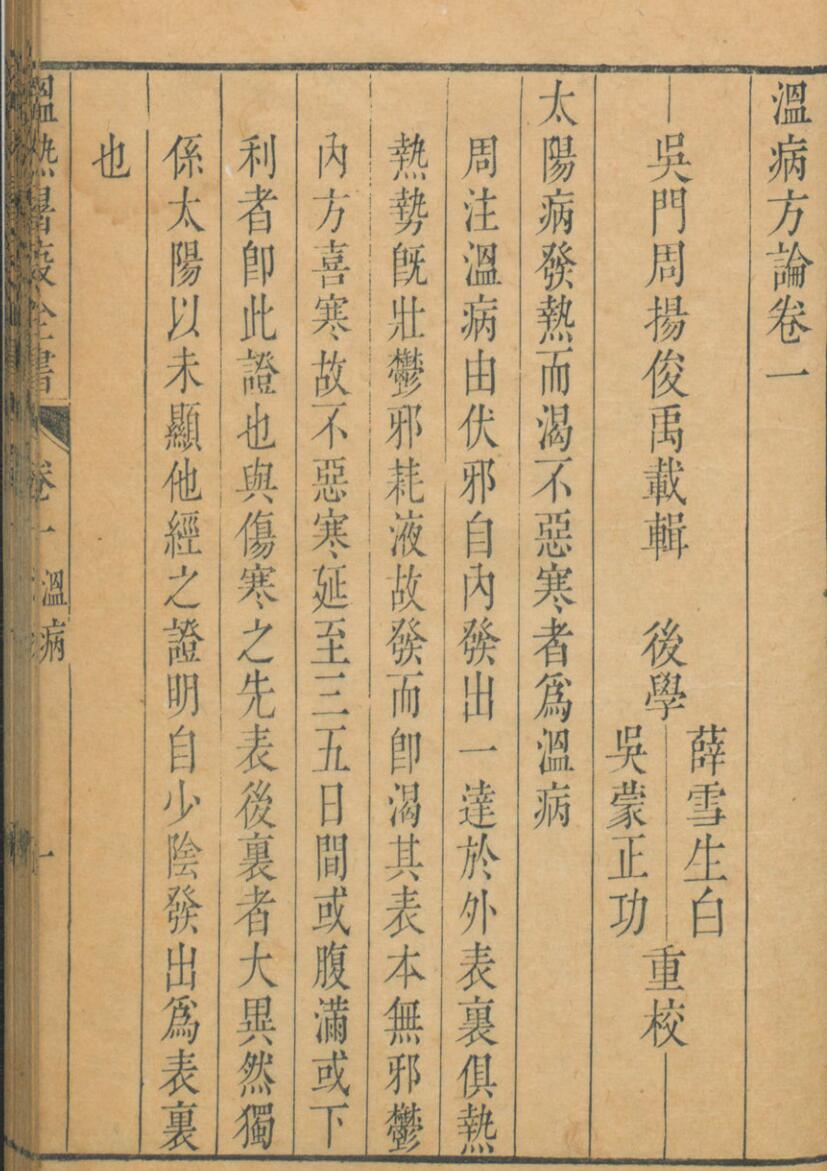 溫病方論卷一
吳門周揚俊禹載輯　後學　薛雪生白　吳蒙正功　重校
太陽病發熱而渴不惡寒者爲溫病
周注溫病由伏邪自內發出一達於外表裏俱熱
熱勢旣壯鬱邪耗液故發而卽渴其表本無邪鬱
內方喜寒故不惡寒延至三五日間或腹滿或下
利者卽此證也與傷寒之先表後裏者大異然獨
係太陽以未顯他經之證明自少陰發出爲表裏
也
溫熱暑疫全書　卷一　溫病　一